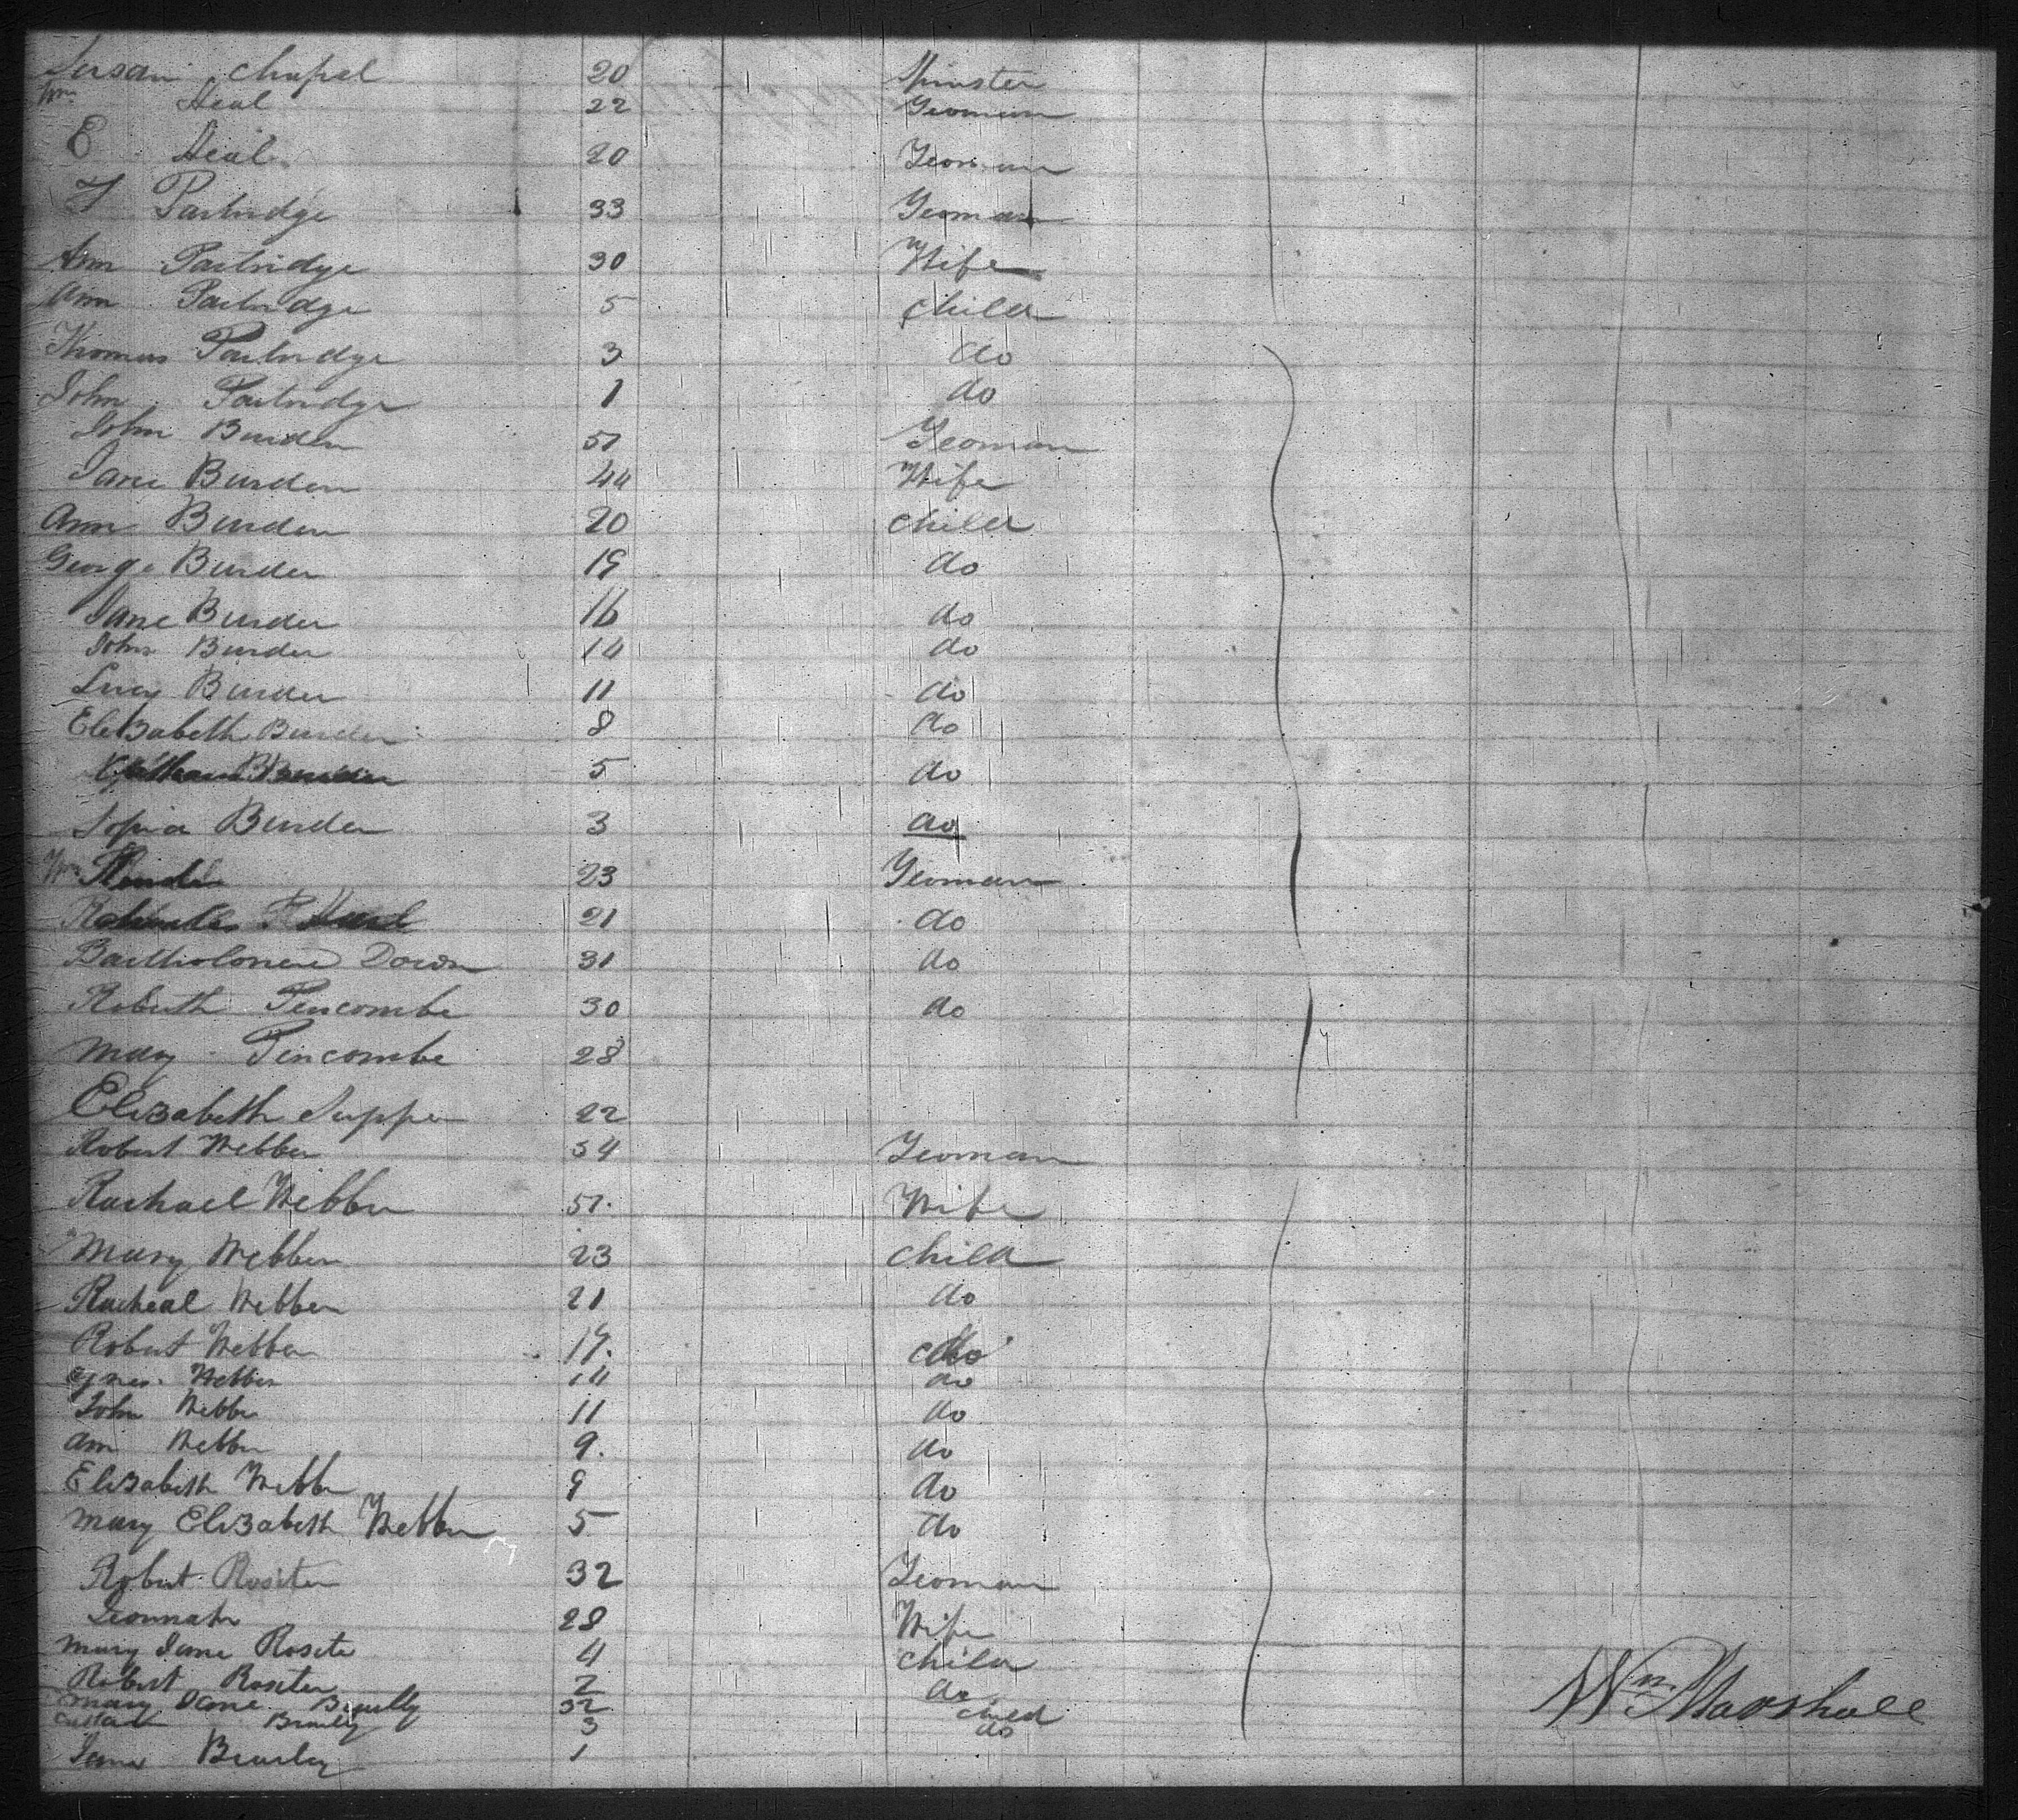 Susan Chapel 20 Spinster
Wm Heal 22 Yeoman
E Heal 20 Yeoman
T Partridge 33 Yeoman
Ann Partridge 30 Wife
Ann Partridge 5 Child
Thomas Partridge 3 do
John Partridge 1 do
John Burden 51 Yeoman
Jane Burden 44 Wife
Ann Burden 20 Child
George Burden 19 do
Jane Burden 16 do
John Burden 14 do
Lucy Burden 11 do
Elizabeth Burden 8 do
Burden 5 do
Sopia Burden 3 do
Wm 23 Yeoman
21 do
Bartholomew Down 31 do
Pincombe 30 do
Mary Pincombe 28
Elizabeth 22
Robert Webber 54 Yeoman
Rachael Webber 51 Wife
Mary Webber 23 Child
Racheal Webber 21 do
Robert Webber do
Webber 14 do
John Webber 11 do
Ann Webber 9 do
Elizabeth Webber 9 do
Mary Elizabeth Webber 5 do
Robert Rositer 32 Yeoman
28 Wife
Mary Jane Rositer 4 Child
Robert Rositer 2 do
Mary Jane 32 Child
3 do
1
Wm Marshall